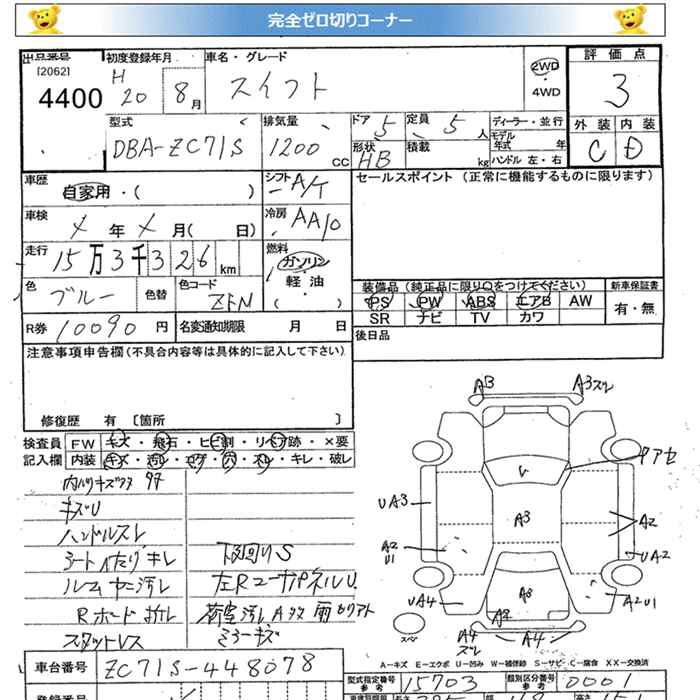 完全ゼロ切りコーナー
出品番号 初度登録年月 車名・グレード 評価点
[2062] H 20 8月 スイフト 2WD 3
4400 4WD
型式 排気量 ドア 5 定員 5人 ディーラー・並行 外装 内装
DBA-ZC71S 1200cc 形状 HB 積載 kg モデル年式 年 C D
ハンドル 左・右
車歴 自家用・( ) シフト A/T セールスポイント (正常に機能するものに限ります)
車検 メ年メ月( 日) 冷房 AAC
走行 15万3千326km 燃料 ガソリン・軽油・( )
色 ブルー 色替 色コード ZFN
装備品 (純正品に限り○をつけてください) 新車保証書
PS PW ABS エアB AW 有・無
SR ナビ TV カワ
R券 10090円 名変通知期限 月 日 後日品
注意事項申告欄(不具合内容等は具体的に記入して下さい)
修復歴 有 [箇所 ]
検査員 FW キズ・飛石・ヒビ割・リペア跡・×要
記入欄 内装 キズ・汚レ・コゲ・穴・スレ・キレ・破レ
キズU
ハンドルスレ
シートヘたり キレ 下回りS
ルームヤニ汚レ 左RコーナパネルU
Rボード
スタットレス ミラーキズ
AB A3 スレ
V
UA3 A3 A2
A2 U1 UA2
UA4 A2 A3 A2U1
スペア A4 スレ A4
A-キズ E-エクボ U-凹み W-補修跡 S-サビ C-腐食 XX-交換済
車台番号 ZC71S-448078
型式指定番号 参考 15703 類別区分番号 参考 0001
登録番号